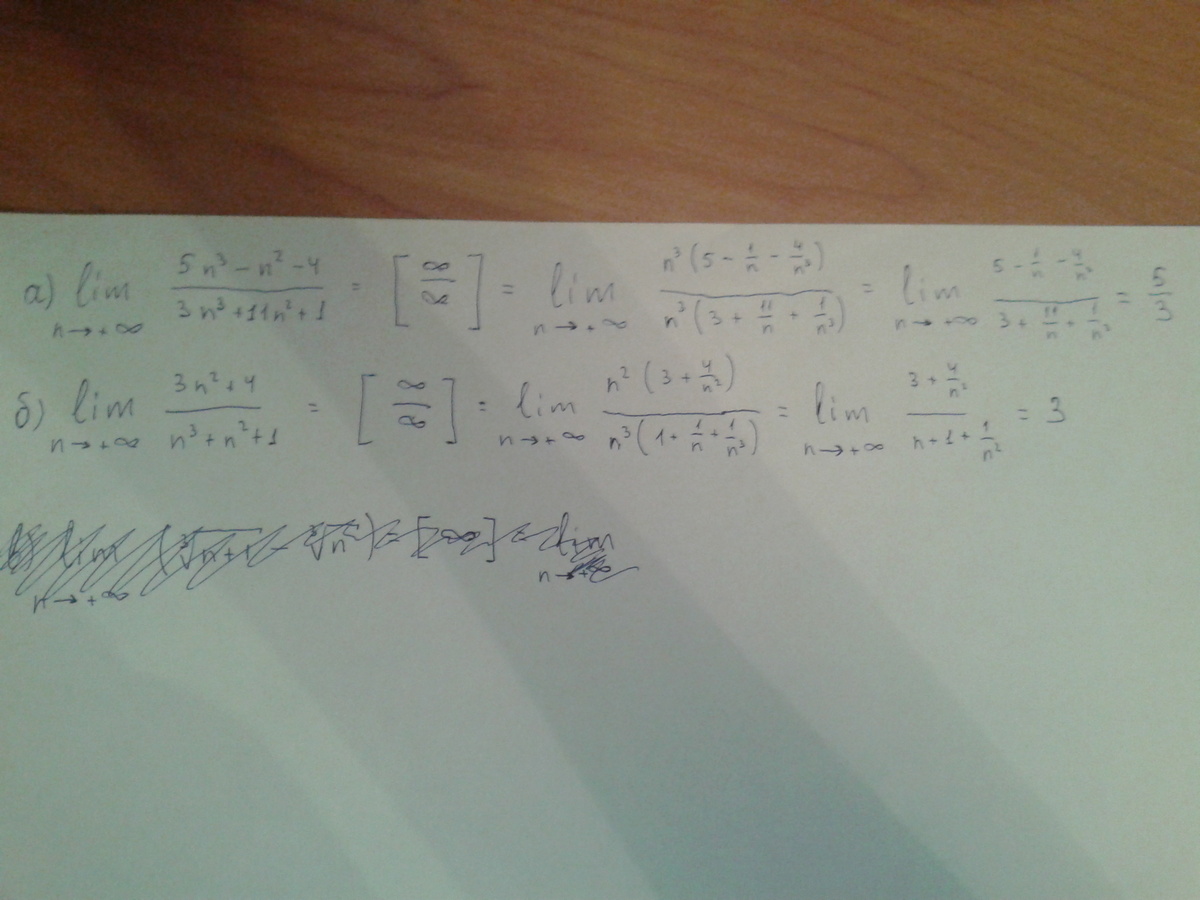 а) lim n→+∞ (5n³ − n² − 4)/(3n³ + 11n² + 1) = [∞/∞] = lim n→+∞ n³(5 − 1/n − 4/n³)/n³(3 + 11/n + 1/n³) = lim n→+∞ (5 − 1/n − 4/n³)/(3 + 11/n + 1/n³) = 5/3
б) lim n→+∞ (3n² + 4)/(n³ + n² + 1) = [∞/∞] = lim n→+∞ n²(3 + 4/n²)/n³(1 + 1/n + 1/n³) = lim n→+∞ (3 + 4/n²)/(n + 1 + 1/n²) = 3
lim n→+∞ = lim n→+∞